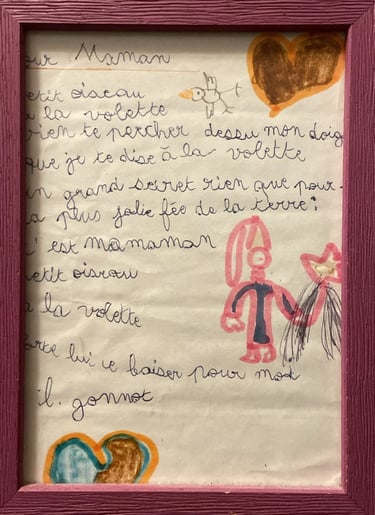 our Maman
etit oiseau
a la volette
vien te percher dessu mon doig
que je te dise à la volette
un grand secret rien que pour
a plus jolie fée de la terre:
c'est mamaman
etit oiseau
a la volette
orte lui ce baiser pour moi
il. gonnot